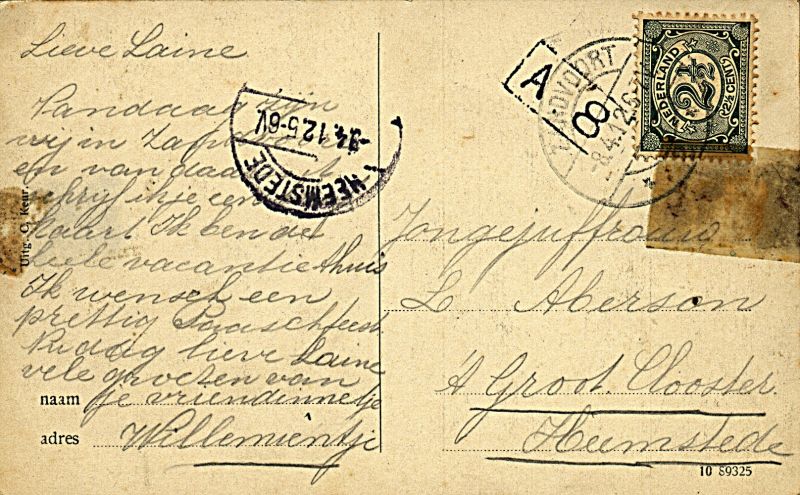 Lieve Laine
Vandaag zijn
wij in
en van daar
schrijf ik je een
kaart Ik ben de
heele vacantie thuis
Ik wensch een
prettig Paaschfeest
Nu dag lieve Laine
vele groeten van
naam je vriendinnetje
adres Willemientje
Uitg. C. Keur.
HEEMSTEDE
-9.4.12.5-6V.
A
8
-8.4.12.6-
NEDERLAND
2½
(2½ CENT)
Jongejuffrouw
L Aberson
't Groot Clooster.
Heemstede
10 89325